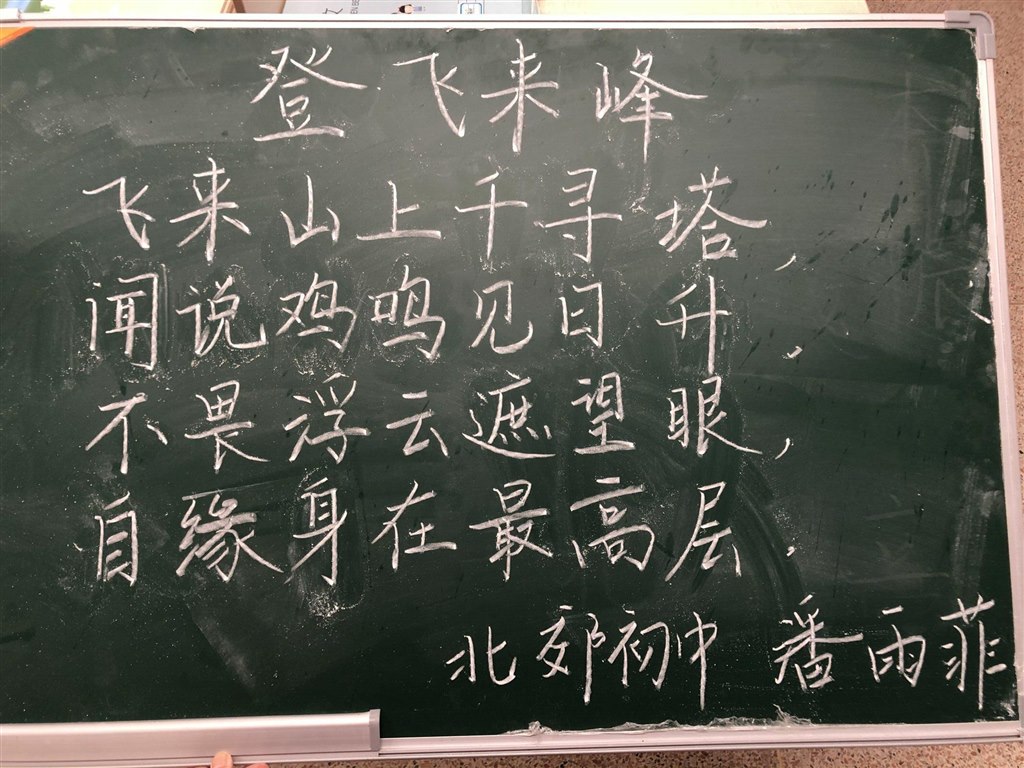 登飞来峰
飞来山上千寻塔，
闻说鸡鸣见日升.
不畏浮云遮望眼，
自缘身在最高层.
北郊初中 潘雨菲